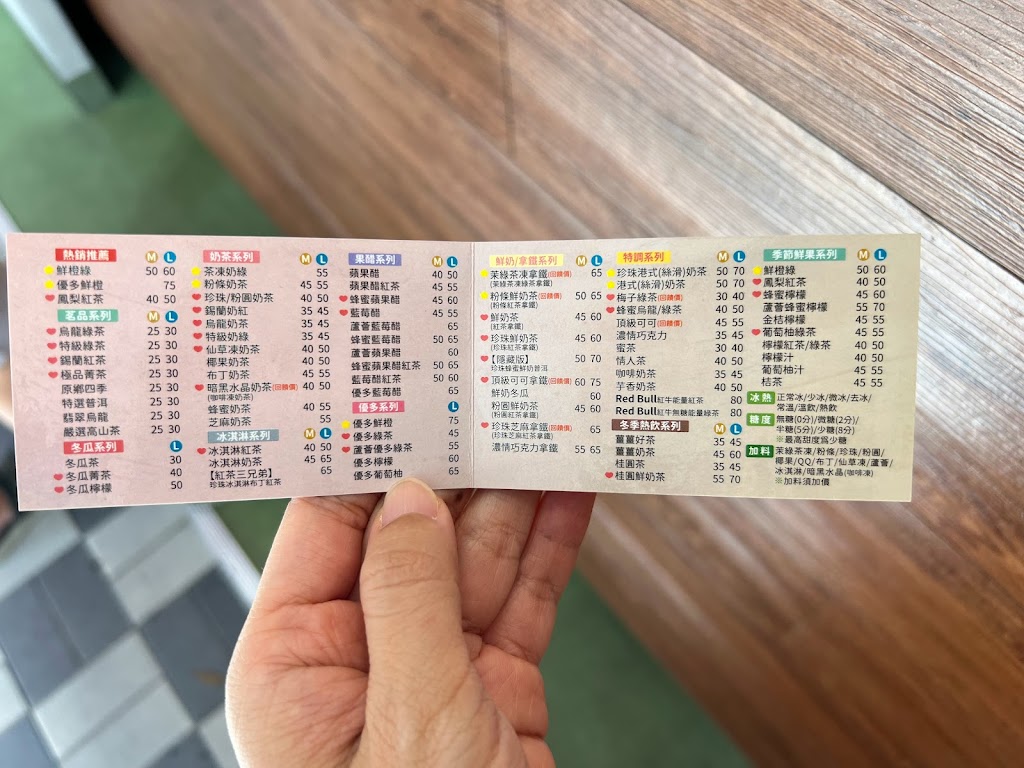 熱銷推薦 M L
鮮橙綠 50 60
優多鮮橙 75
鳳梨紅茶 40 50
茗品系列 M L
烏龍綠茶 25 30
特級綠茶 25 30
錫蘭紅茶 25 30
極品菁茶 25 30
原鄉四季 25 30
特選普洱 25 30
翡翠烏龍 25 30
嚴選高山茶 25 30
冬瓜系列 L
冬瓜茶 30
冬瓜菁茶 40
冬瓜檸檬 50
奶茶系列 M L
茶凍奶綠 55
粉條奶茶 45 55
珍珠/粉圓奶茶 40 50
錫蘭奶紅 35 45
烏龍奶茶 35 45
特級奶綠 35 45
仙草凍奶茶 40 50
椰果奶茶 40 50
布丁奶茶 45 55
暗黑水晶奶茶(回饋價) 40 50
(咖啡凍奶茶)
蜂蜜奶茶 40 55
芝麻奶茶 55
冰淇淋系列 M L
冰淇淋紅茶 40 50
冰淇淋奶茶 45 65
【紅茶三兄弟】 65
珍珠冰淇淋布丁紅茶
果醋系列 M L
蘋果醋 40 50
蘋果醋紅茶 45 55
蜂蜜蘋果醋 40 55
藍莓醋 45 55
蘆薈藍莓醋 65
蜂蜜藍莓醋 50 65
蘆薈蘋果醋 60
蜂蜜蘋果醋紅茶 50 65
藍莓醋紅茶 50 60
優多藍莓醋 65
優多系列 L
優多鮮橙 75
優多綠茶 45
蘆薈優多綠茶 55
優多檸檬 60
優多葡萄柚 65
鮮奶/拿鐵系列 M L
茉綠茶凍拿鐵(回饋價) 65
(茉綠茶凍綠茶拿鐵)
粉條鮮奶茶(回饋價) 50 65
(粉條紅茶拿鐵)
鮮奶茶 45 60
(紅茶拿鐵)
珍珠鮮奶茶 45 60
(珍珠紅茶拿鐵)
【隱藏版】 50 70
珍珠蜂蜜鮮奶普洱
頂級可可拿鐵(回饋價) 60 75
鮮奶冬瓜 60
粉圓鮮奶茶 45 60
(粉圓紅茶拿鐵)
珍珠芝麻拿鐵(回饋價) 65
(珍珠芝麻紅茶拿鐵)
濃情巧克力拿鐵 55 65
特調系列 M L
珍珠港式(絲滑)奶茶 50 70
港式(絲滑)奶茶 50 70
梅子綠茶(回饋價) 30 40
蜂蜜烏龍/綠茶 40 50
頂級可可(回饋價) 45 55
濃情巧克力 35 45
蜜茶 30 40
情人茶 40 50
咖啡奶茶 35 45
芋香奶茶 40 50
Red Bull紅牛能量紅茶 80
Red Bull紅牛無糖能量綠茶 80
冬季熱飲系列 M L
薑薑好茶 35 45
薑薑奶茶 45 60
桂圓茶 35 45
桂圓鮮奶茶 55 70
季節鮮果系列 M L
鮮橙綠 50 60
鳳梨紅茶 40 50
蜂蜜檸檬 45 60
蘆薈蜂蜜檸檬 55 70
金桔檸檬 45 55
葡萄柚綠茶 45 55
檸檬紅茶/綠茶 40 50
檸檬汁 40 50
葡萄柚汁 45 55
桔茶 45 55
冰熱 正常冰/少冰/微冰/去冰/
常溫/溫飲/熱飲
糖度 無糖(0分)/微糖(2分)/
半糖(5分)/少糖(8分)
※最高甜度爲少糖
加料 茉綠茶凍/粉條/珍珠/粉圓/
椰果/QQ/布丁/仙草凍/蘆薈/
冰淇淋/暗黑水晶(咖啡凍)
※加料須加價